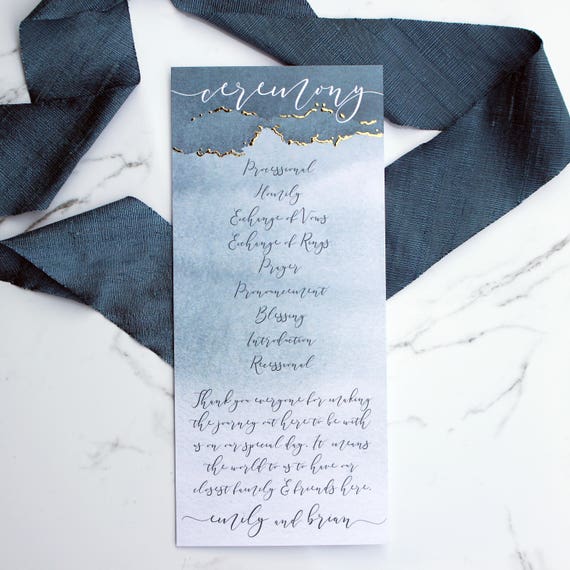 ceremony
Processional
Homily
Exchange of Vows
Exchange of Rings
Prayer
Pronouncement
Blessing
Introduction
Recessional
Thank you everyone for making
the journey out here to be with
us on our special day. It means
the world to us to have our
closest family & friends here.
emily and brian